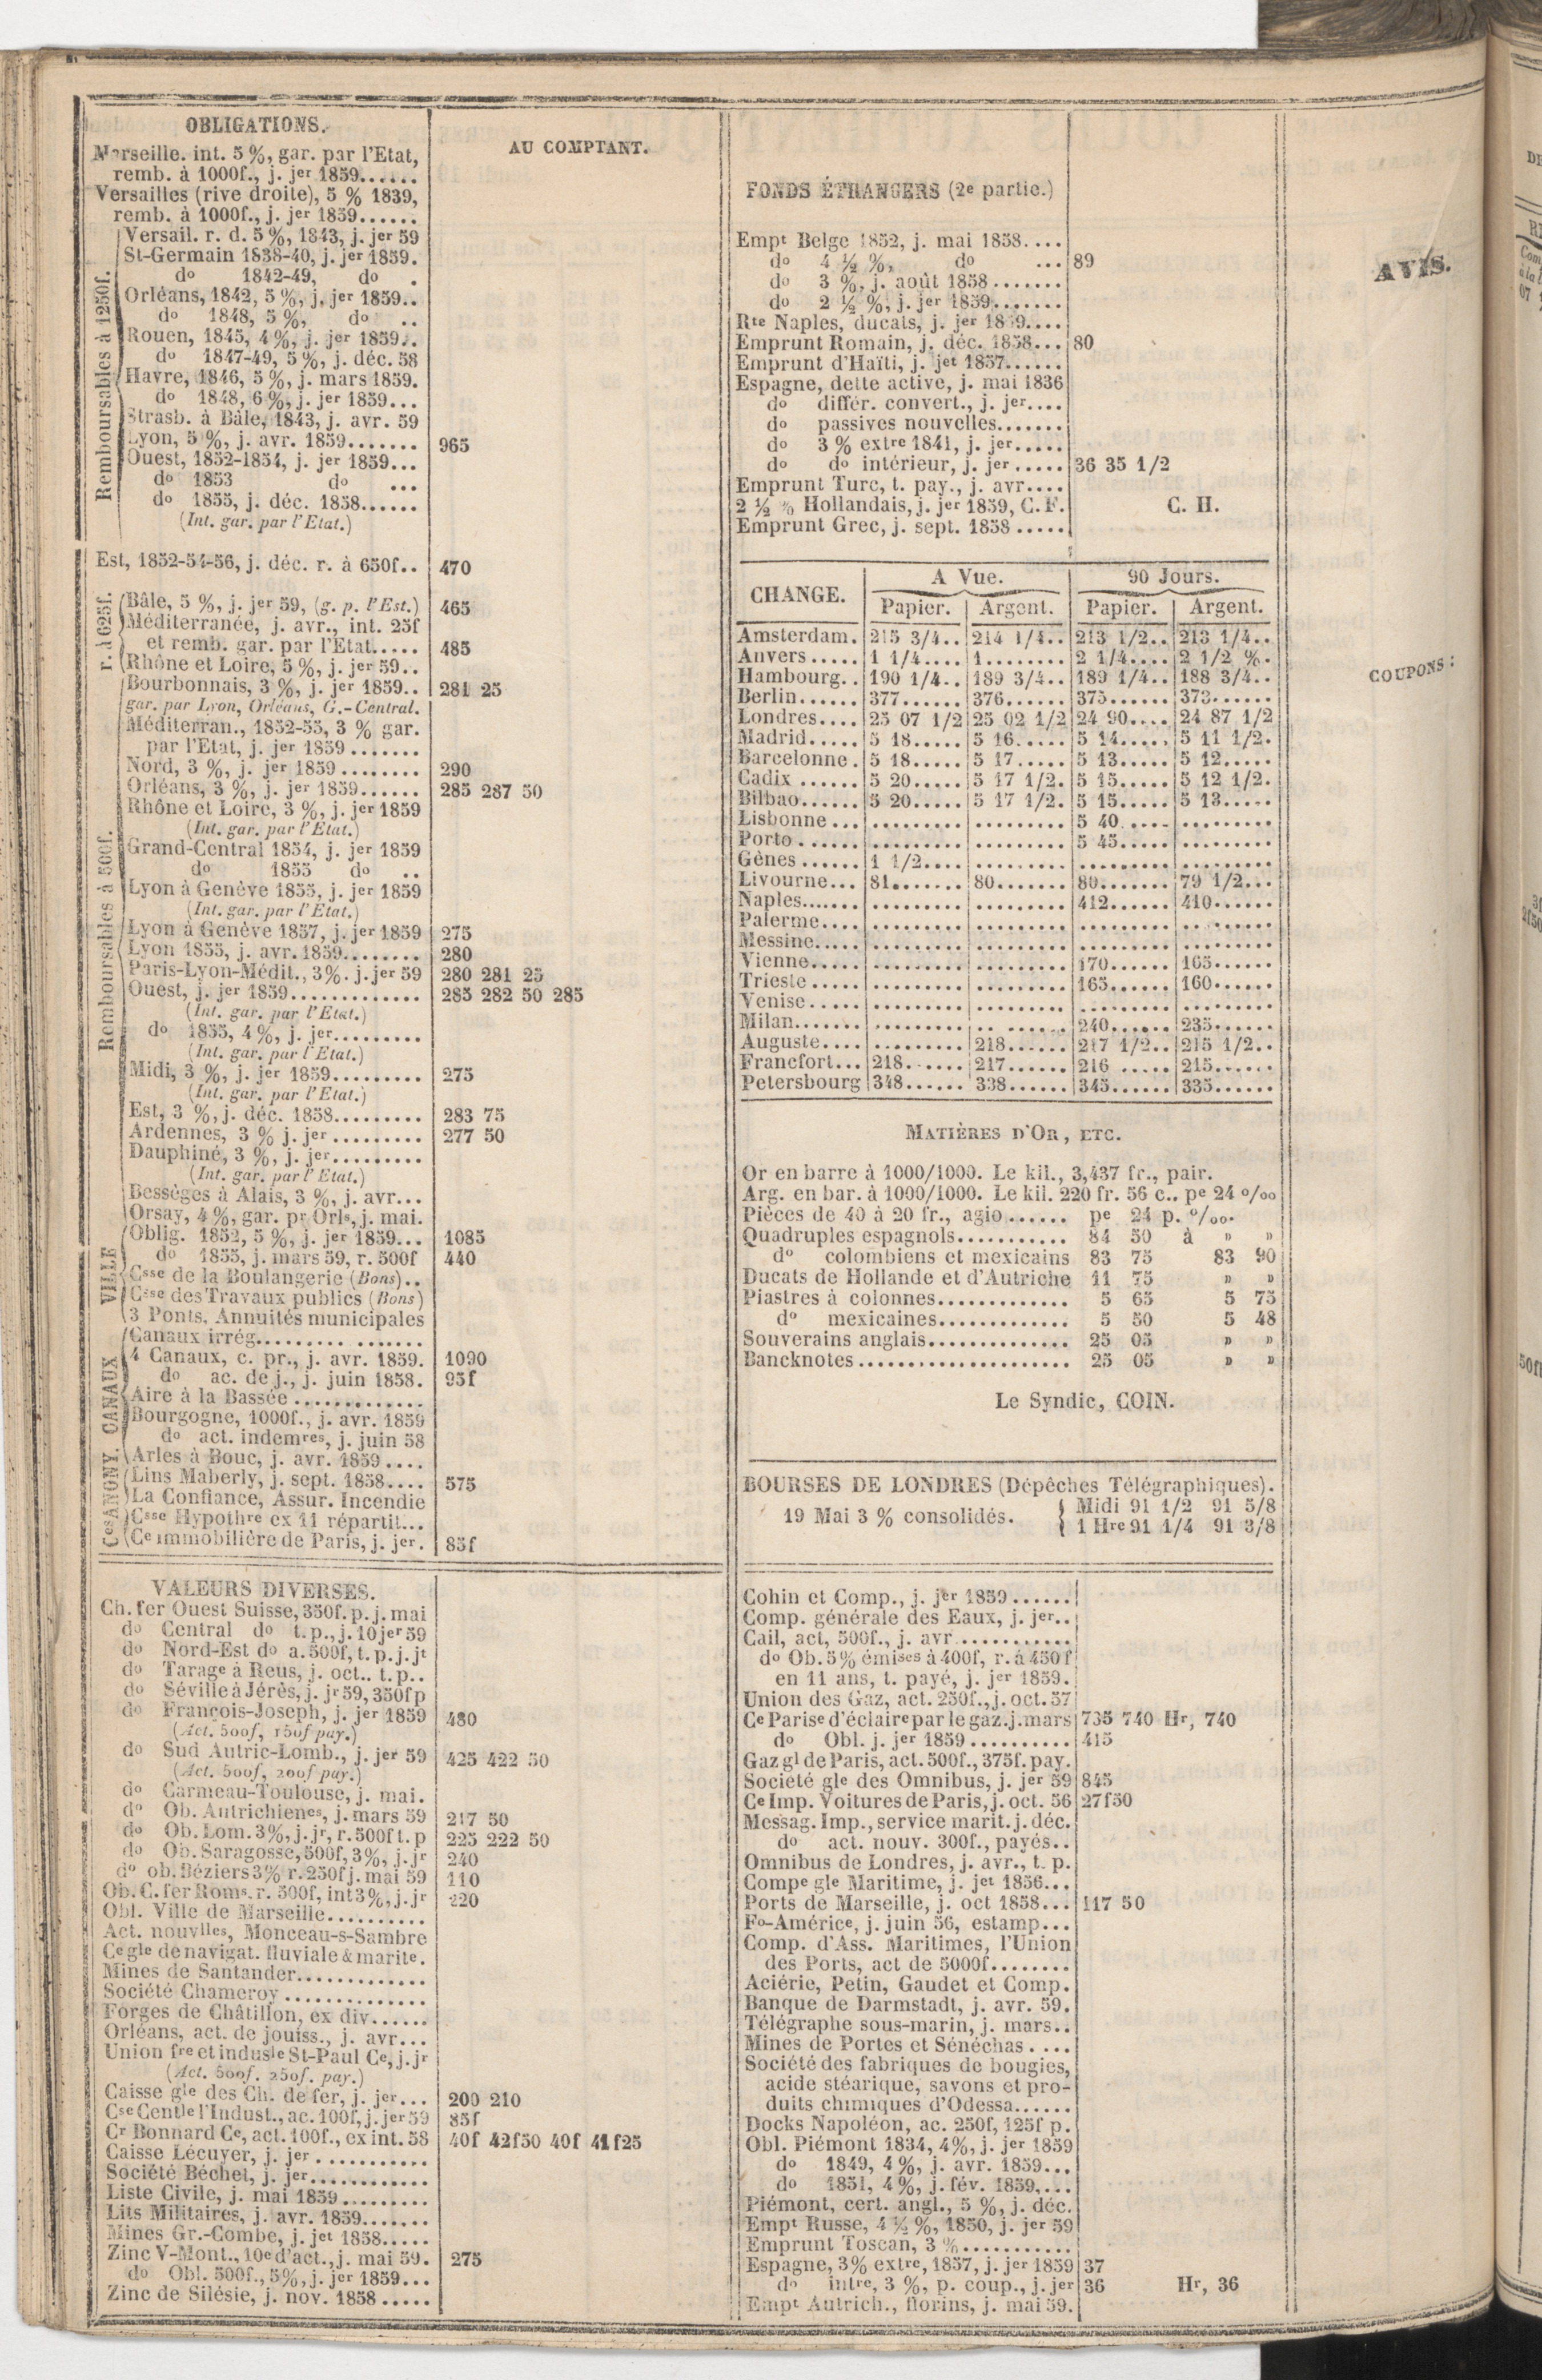 OBLIGATIONS.
AU COMPTANT.
Marseille. int. 5 %, gar. par l'Etat,
remb. à 1000f., j. jer 1859......
Versailles (rive droite), 5 % 1839,
remb. à 1000f., j. jer 1859......
Remboursables à 1250f.
Versail. r. d. 5 %, 1843, j. jer 59
St-Germain 1838-40, j. jer 1859.
do 1842-49, do .
Orléans, 1842, 5 %, j. jer 1859..
do 1848, 5 %, do ..
Rouen, 1845, 4 %, j. jer 1859..
do 1847-49, 5 %, j. déc. 58
Havre, 1846, 5 %, j. mars 1859.
do 1848, 6 %, j. jer 1859...
Strasb. à Bâle, 1843, j. avr. 59
Lyon, 5 %, j. avr. 1859....... 965
Ouest, 1852-1854, j. jer 1859...
do 1853 do ...
do 1855, j. déc. 1858......
(Int. gar. par l'Etat.)
Est, 1852-54-56, j. déc. r. à 650f.. 470
r. à 625f.
Bâle, 5 %, j. jer 59, (g. p. l'Est.) 465
Méditerranée, j. avr., int. 25f
et remb. gar. par l'Etat..... 485
Rhône et Loire, 5 %, j. jer 59..
Remboursables à 500f.
Bourbonnais, 3 %, j. jer 1859.. 281 25
gar. par Lyon, Orléans, G.-Central.
Méditerran., 1852-55, 3 % gar.
par l'Etat, j. jer 1859 .......
Nord, 3 %, j. jer 1859 ........ 290
Orléans, 3 %, j. jer 1859...... 285 287 50
Rhône et Loire, 3 %, j. jer 1859
(Int. gar. par l'Etat.)
Grand-Central 1854, j. jer 1859
do 1855 do ..
Lyon à Genève 1855, j. jer 1859
(Int. gar. par l'Etat.)
Lyon à Genève 1857, j. jer 1859 275
Lyon 1855, j. avr. 1859........ 280
Paris-Lyon-Médit., 3%. j. jer 59 280 281 25
Ouest, j. jer 1859............. 285 282 50 285
(Int. gar. par l'Etat.)
do 1855, 4 %, j. jer.........
(Int. gar. par l'Etat.)
Midi, 3 %, j. jer 1859......... 275
(Int. gar. par l'Etat.)
Est, 3 %, j. déc. 1858......... 283 75
Ardennes, 3 % j. jer ......... 277 50
Dauphiné, 3 %, j. jer.........
(Int. gar. par l'Etat.)
Bessèges à Alais, 3 %, j. avr...
Orsay, 4 %, gar. pr Orls, j. mai.
VILLE
Oblig. 1852, 5 %, j. jer 1859... 1085
do 1855, j. mars 59, r. 500f 440
Csse de la Boulangerie (Bons)..
Csse des Travaux publics (Bons)
3 Ponts, Annuités municipales
CANAUX
Canaux irrég......... .......
4 Canaux, c. pr., j. avr. 1859. 1090
do ac. de j., j. juin 1858. 95f
Aire à la Bassée .............
Bourgogne, 1000f., j. avr. 1859
do act. indemres, j. juin 58
Arles à Bouc, j. avr. 1859 ....
Ces ANONY.
Lins Maberly, j. sept. 1858.... 575
La Confiance, Assur. Incendie
Csse Hypothre ex 11 répartit...
Ce immobilière de Paris, j. jer. 85f
VALEURS DIVERSES.
Ch. fer Ouest Suisse, 350f. p. j. mai
do Central do t. p., j. 10 jer 59
do Nord-Est do a. 500f, t. p. j. jt
do Tarage à Reus, j. oct.. t. p..
do Séville à Jérès, j. jr 59, 350f p
do François-Joseph, j. jer 1859 480
(Act. 500f, 150f pay.)
do Sud Autric-Lomb., j. jer 59 425 422 50
(Act. 500f, 200f pay.)
do Carmeau-Toulouse, j. mai.
do Ob. Autrichienes, j. mars 59 217 50
do Ob. Lom. 3%, j. jr, r. 500f t. p 225 222 50
do Ob. Saragosse, 500f, 3%, j. jr 240
do ob. Béziers 3% r. 250f j. mai 59 110
Ob. C. fer Roms. r. 500f, int 3%, j. jr 220
Obl. Ville de Marseille..........
Act. nouvlles, Monceau-s-Sambre
Ce gle de navigat. fluviale & marite.
Mines de Santander.............
Société Chameroy ..............
Forges de Châtillon, ex div......
Orléans, act. de jouiss., j. avr...
Union fre et indusle St-Paul Ce, j. jr
(Act. 500f. 250f. pay.)
Caisse gle des Ch. de fer, j. jer... 200 210
Cse Centle l'Indust., ac. 100f, j. jer 59 85f
Cr Bonnard Ce, act. 100f., ex int. 58 40f 42f50 40f 41f25
Caisse Lécuyer, j. jer ...........
Société Béchet, j. jer............
Liste Civile, j. mai 1859.........
Lits Militaires, j. avr. 1859.......
Mines Gr.-Combe, j. jet 1858.....
Zinc V-Mont., 10e d'act., j. mai 59. 275
do Obl. 500f., 5%, j. jer 1859...
Zinc de Silésie, j. nov. 1858 .....
FONDS ÉTRANGERS (2e partie.)
Empt Belge 1852, j. mai 1858....
do 4 ½ %, do ... 89
do 3 %, j. août 1858 .......
do 2 ½ %, j. jer 1859.......
Rte Naples, ducats, j. jer 1859....
Emprunt Romain, j. déc. 1858... 80
Emprunt d'Haïti, j. jet 1857......
Espagne, dette active, j. mai 1836
do différ. convert., j. jer....
do passives nouvelles.......
do 3 % extre 1841, j. jer.....
do do intérieur, j. jer ..... 36 35 1/2
Emprunt Turc, t. pay., j. avr....
2 ½ % Hollandais, j. jer 1859, C. F. C. H.
Emprunt Grec, j. sept. 1858 .....
CHANGE. A Vue. 90 Jours.
Papier. Argent. Papier. Argent.
Amsterdam. 215 3/4.. 214 1/4.. 213 1/2.. 213 1/4..
Anvers..... 1 1/4.... 1........ 2 1/4.... 2 1/2 %.
Hambourg.. 190 1/4.. 189 3/4.. 189 1/4.. 188 3/4..
Berlin...... 377...... 376...... 375...... 373......
Londres.... 25 07 1/2 25 02 1/2 24 90.... 24 87 1/2
Madrid..... 5 18..... 5 16..... 5 14..... 5 11 1/2.
Barcelonne. 5 18..... 5 17..... 5 13..... 5 12.....
Cadix ...... 5 20..... 5 17 1/2. 5 15..... 5 12 1/2.
Bilbao...... 5 20..... 5 17 1/2. 5 15..... 5 13.....
Lisbonne... ......... ......... 5 40..... .........
Porto ...... ......... ......... 5 45..... .........
Gènes ...... 1 1/2.... ......... ......... .........
Livourne... 81....... 80....... 80....... 79 1/2...
Naples....... ......... ......... 412...... 410......
Palerme.... ......... ......... ......... .........
Messine..... ......... ......... ......... .........
Vienne..... ......... ......... 170...... 165......
Trieste ..... ......... ......... 165...... 160......
Venise..... ......... ......... ......... .........
Milan....... ......... ......... 240...... 235......
Auguste.... ......... 218...... 217 1/2.. 215 1/2..
Francfort... 218...... 217...... 216 ..... 215......
Petersbourg 348...... 338...... 345...... 335......
MATIÈRES D'OR, ETC.
Or en barre à 1000/1000. Le kil., 3,437 fr., pair.
Arg. en bar. à 1000/1000. Le kil. 220 fr. 56 c.. pe 24 o/oo
Pièces de 40 à 20 fr., agio...... pe 24 p. o/oo.
Quadruples espagnols........... 84 50 à » »
do colombiens et mexicains 83 75 83 90
Ducats de Hollande et d'Autriche 11 75 » »
Piastres à colonnes............. 5 65 5 75
do mexicaines............. 5 50 5 48
Souverains anglais.............. 25 05 » »
Bancknotes..................... 25 05 » »
Le Syndic, COIN.
BOURSES DE LONDRES (Dépêches Télégraphiques).
19 Mai 3 % consolidés.
Midi 91 1/2 91 5/8
1 Hre 91 1/4 91 3/8
Cohin et Comp., j. jer 1859......
Comp. générale des Eaux, j. jer..
Cail, act, 500f., j. avr...........
do Ob. 5% émises à 400f, r. à 450f
en 11 ans, t. payé, j. jer 1859.
Union des Gaz, act. 250f., j. oct. 57
Ce Parise d'éclaire par le gaz. j. mars 735 740 Hr, 740
do Obl. j. jer 1859.......... 415
Gaz gl de Paris, act. 500f., 375f. pay.
Societé gle des Omnibus, j. jer 59 845
Ce Imp. Voitures de Paris, j. oct. 56 27f50
Messag. Imp., service marit. j. déc.
do act. nouv. 300f., payés..
Omnibus de Londres, j. avr., t. p.
Compe gle Maritime, j. jet 1856...
Ports de Marseille, j. oct 1858... 117 50
Fo-Américe, j. juin 56, estamp...
Comp. d'Ass. Maritimes, l'Union
des Ports, act de 5000f........
Aciérie, Petin, Gaudet et Comp.
Banque de Darmstadt, j. avr. 59.
Télégraphe sous-marin, j. mars..
Mines de Portes et Sénéchas....
Société des fabriques de bougies,
acide stéarique, savons et pro-
duits chimiques d'Odessa......
Docks Napoléon, ac. 250f, 125f p.
Obl. Piémont 1834, 4%, j. jer 1859
do 1849, 4 %, j. avr. 1859...
do 1851, 4 %, j. fév. 1859....
Piémont, cert. angl., 5 %, j. déc.
Empt Russe, 4 ½ %, 1850, j. jer 59
Emprunt Toscan, 3 %...........
Espagne, 3% extre, 1857, j. jer 1859 37
do intre, 3 %, p. coup., j. jer 36 Hr, 36
Empt Autrich., florins, j. mai 59.
AVIS.
COUPONS :